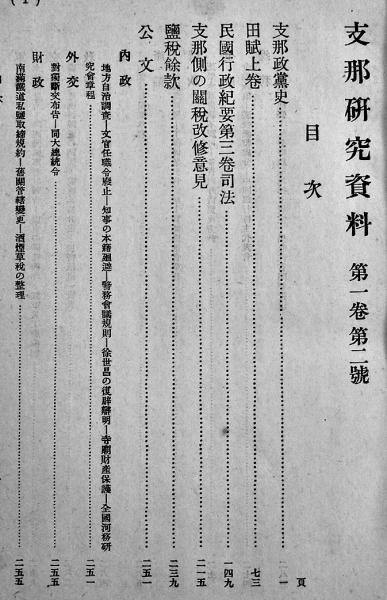 (1)
支那研究資料 第一卷第二號
目次
頁
支那政黨史…………一
田賦上卷…………七三
民國行政紀要第三卷司法…………一四九
支那側の關稅改修意見…………二一五
鹽稅餘款…………二三九
公文…………二五一
內政…………二五一
地方自治調査―文官任職令廢止―知事の本籍廻避―警務會議規則―徐世昌の復辟辯明―寺廟財產保護―全國河務研
究會章程
外交…………二五五
對獨斷交布告―同大總統令
財政…………二五五
南滿鐵道私鹽取締規約―舊關管轄變更―酒煙草稅の整理
目次